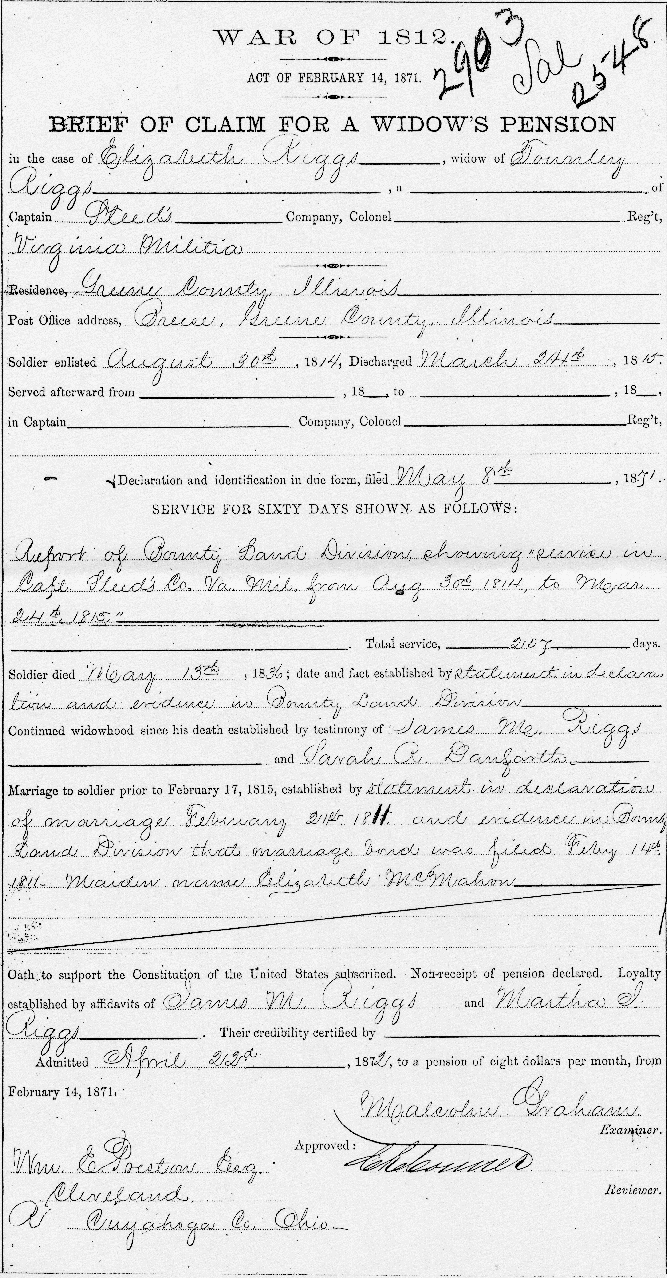 WAR OF 1812.
2903
Sol
2548
ACT OF FEBRUARY 14, 1871.
BRIEF OF CLAIM FOR A WIDOW'S PENSION
in the case of Elizabeth Riggs, widow of Townley
Riggs, a of
Captain Steed's Company, Colonel Reg't,
Virginia Militia
Residence, Greene County Illinois
Post Office address, Breese, Greene County, Illinois
Soldier enlisted August 30th, 1814, Discharged March 24th, 1815.
Served afterward from , 18 , to , 18 ,
in Captain Company, Colonel Reg't,
Declaration and identification in due form, filed May 8th, 1871.
SERVICE FOR SIXTY DAYS SHOWN AS FOLLOWS:
Report of Bounty Land Division showing "service in
Capt Steed's Co. Va. Mil. from Aug 30th 1814, to Mar
24th 1815"
Total service, 207 days.
Soldier died May 13th, 1836; date and fact established by statement in declara
tion and evidence in Bounty Land Division
Continued widowhood since his death established by testimony of James M. Riggs
and Sarah A. Danforth
Marriage to soldier prior to February 17, 1815, established by statement in declaration
of marriage February 21st 1811 and evidence in Bounty
Land Division that marriage bond was filed Feby 14th
1811. Maiden name Elizabeth McMahon
Oath to support the Constitution of the United States subscribed. Non-receipt of pension declared. Loyalty
established by affidavits of James M. Riggs and Martha J.
Riggs. Their credibility certified by
Admitted April 22d, 1872, to a pension of eight dollars per month, from
February 14, 1871.
Malcolm Graham
Examiner.
Approved:
Reviewer.
Wm. E. Preston Esq
Cleveland
Cuyahoga Co. Ohio